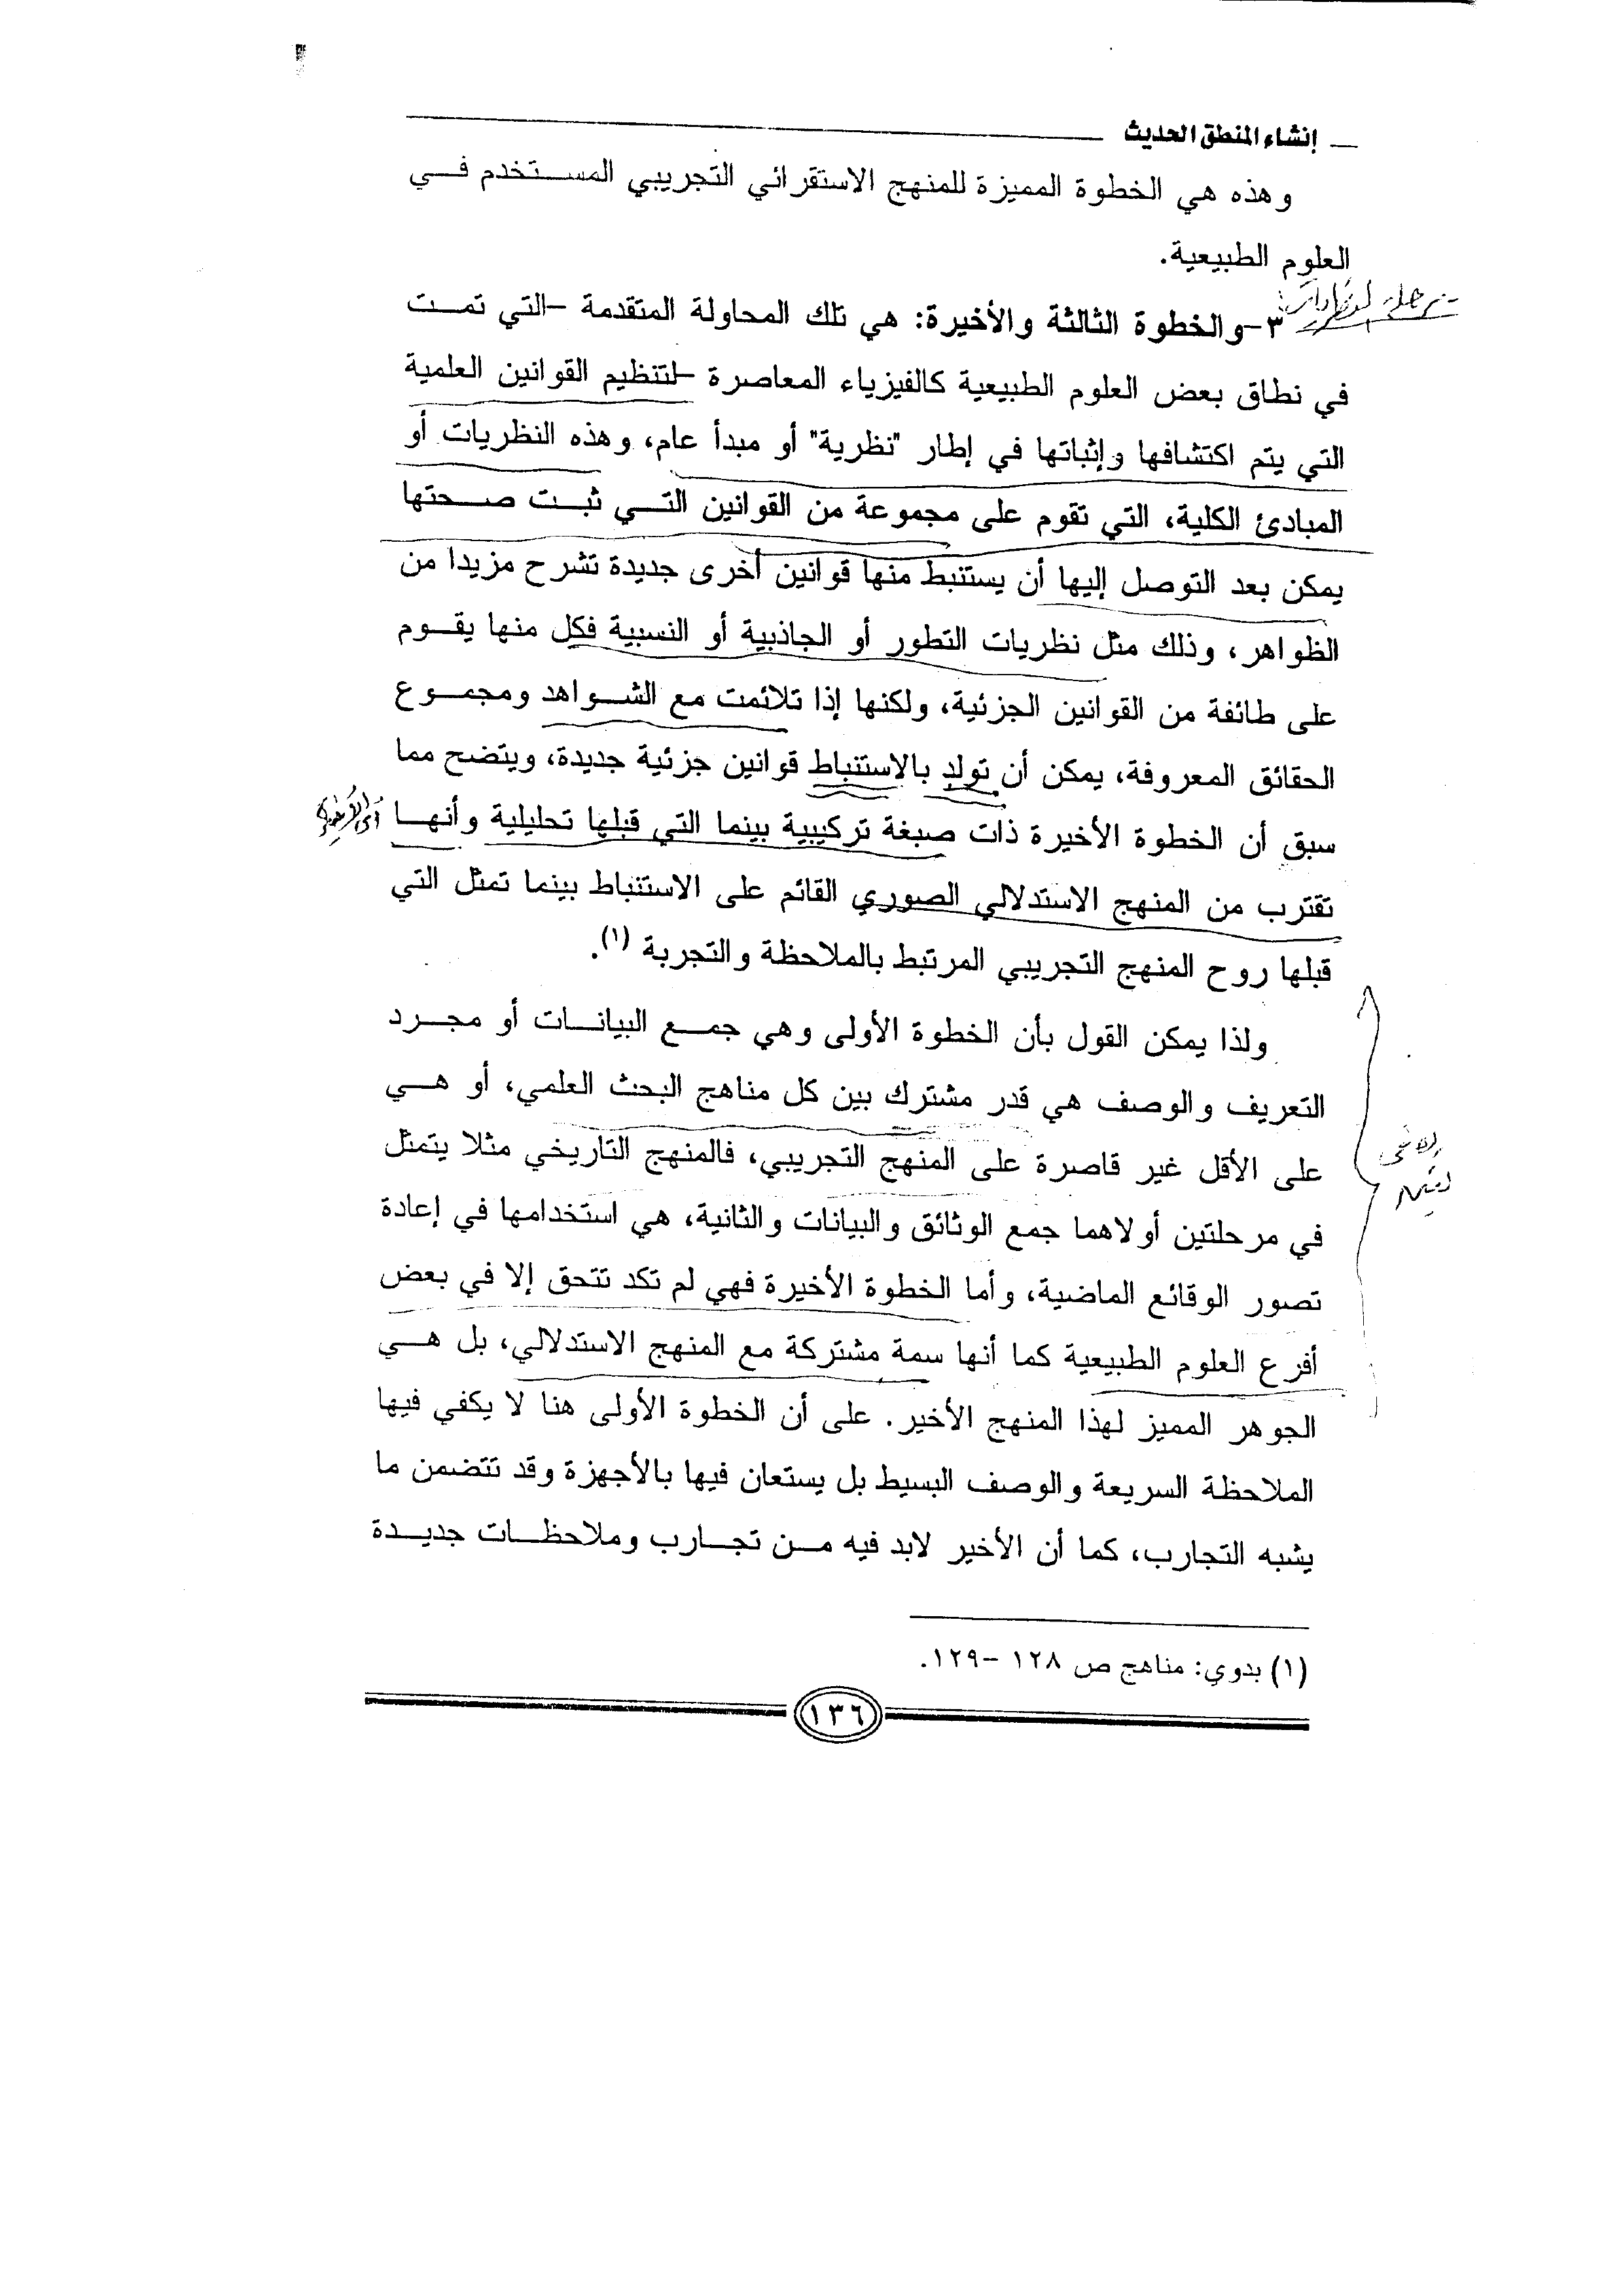 إنشاء المنطق الحديث
وهذه هي الخطوة المميزة للمنهج الاستقرائي التجريبي المستخدم في
العلوم الطبيعية.
٣-والخطوة الثالثة والأخيرة: هي تلك المحاولة المتقدمة -التي تمت
في نطاق بعض العلوم الطبيعية كالفيزياء المعاصرة -لتنظيم القوانين العلمية
التي يتم اكتشافها وإثباتها في إطار "نظرية" أو مبدأ عام، وهذه النظريات أو
المبادئ الكلية، التي تقوم على مجموعة من القوانين التي ثبت صحتها
يمكن بعد التوصل إليها أن يستنبط منها قوانين أخرى جديدة تشرح مزيدا من
الظواهر، وذلك مثل نظريات التطور أو الجاذبية أو النسبية فكل منها يقوم
على طائفة من القوانين الجزئية، ولكنها إذا تلائمت مع الشواهد ومجموع
الحقائق المعروفة، يمكن أن تولد بالاستنباط قوانين جزئية جديدة، ويتضح مما
سبق أن الخطوة الأخيرة ذات صبغة تركيبية بينما التي قبلها تحليلية وأنها
تقترب من المنهج الاستدلالي الصوري القائم على الاستنباط بينما تمثل التي
قبلها روح المنهج التجريبي المرتبط بالملاحظة والتجربة (١).
ولذا يمكن القول بأن الخطوة الأولى وهي جمع البيانات أو مجرد
التعريف والوصف هي قدر مشترك بين كل مناهج البحث العلمي، أو هي
على الأقل غير قاصرة على المنهج التجريبي، فالمنهج التاريخي مثلا يتمثل
في مرحلتين أولاهما جمع الوثائق والبيانات والثانية، هي استخدامها في إعادة
تصور الوقائع الماضية، وأما الخطوة الأخيرة فهي لم تكد تتحق إلا في بعض
أفرع العلوم الطبيعية كما أنها سمة مشتركة مع المنهج الاستدلالي، بل هي
الجوهر المميز لهذا المنهج الأخير. على أن الخطوة الأولى هنا لا يكفي فيها
الملاحظة السريعة والوصف البسيط بل يستعان فيها بالأجهزة وقد تتضمن ما
يشبه التجارب، كما أن الأخير لابد فيه من تجارب وملاحظات جديدة
(١) بدوي: مناهج ص ١٢٨ -١٢٩.
١٣٦